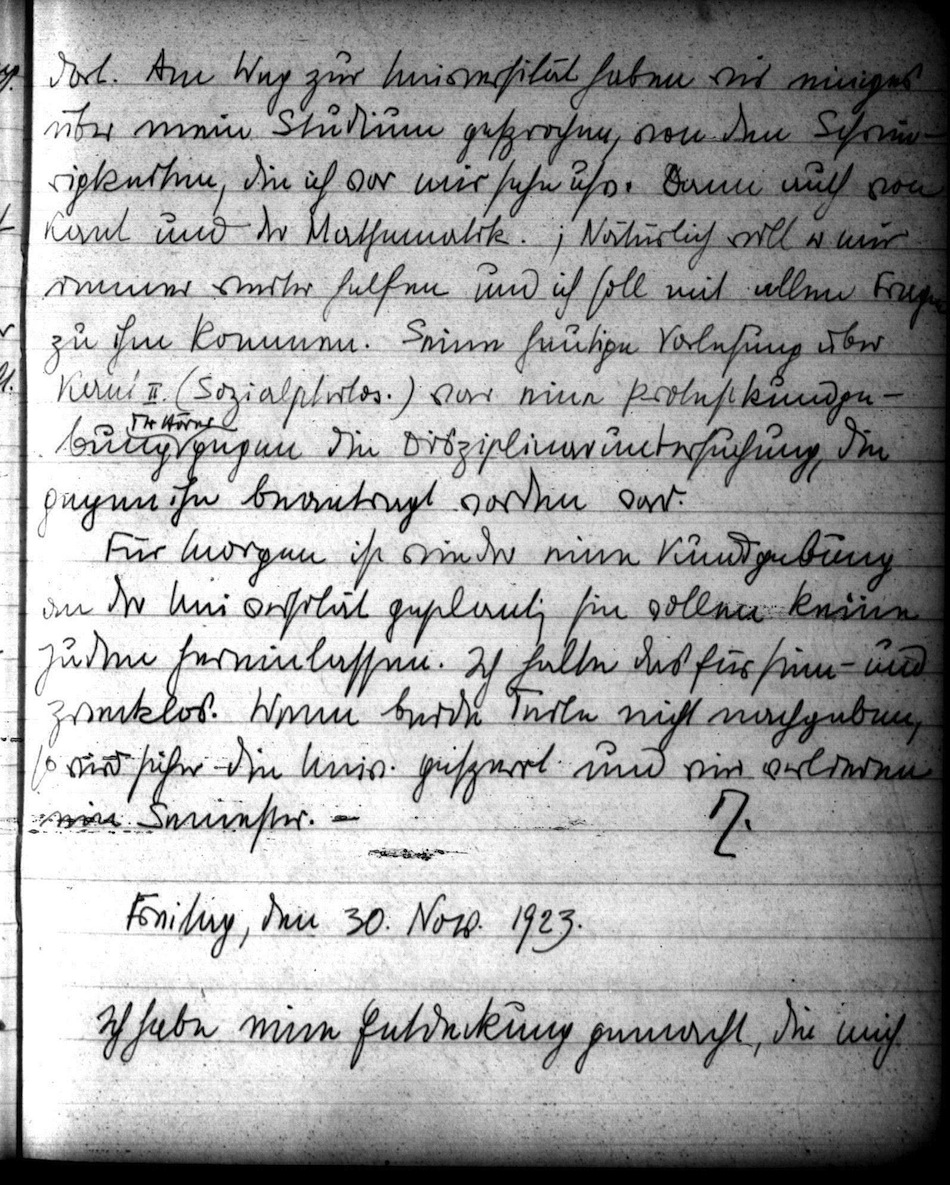 dort. Am Weg zur Universität haben wir einiges
über mein Studium gesprochen, von den Schwie-
rigkeiten, die ich vor mir sehe usw. Dann auch von
Kant und der Mathematik. ; Natürlich will er mir
immer weiter helfen und ich soll mit allen Fragen
zu ihm kommen. Seine heutige Vorlesung über
Kant II. (Sozialphilos.) war eine Protestkundge-
der Hörer
bung gegen die Disziplinaruntersuchung, die
gegen ihn beantragt worden war.
Für Morgen ist wieder eine Kundgebung
an der Universität geplant; sie wollen keine
Juden hereinlassen. Ich halte das für sinn- und
zwecklos. Wenn beide Teile nicht nachgeben,
so wird sicher die Univ. gesperrt und wir verlieren
ein Semester. –
Freitag, den 30. Nov. 1923.
Ich habe eine Entdeckung gemacht, die mich